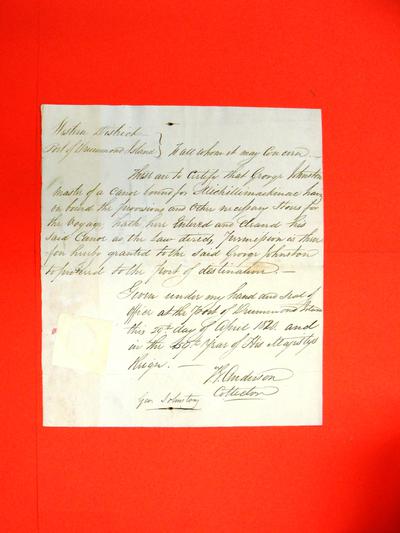 Western District
Port of Drummond Island } To all whom it may Concern —
These are to Certify that George Johnston
master of a Canoe bound for Michilimackinac having
on board the provisions and other necessary Stores for
the Voyage hath here Entered and Cleared his
Said Canoe as the Law directs, Permission is there
fore hereby granted to the said George Johnston
to proceed to the port of destination —
Given under my hand and Seal of
Office at the Port of Drummond Island
this day of April and
in the year of His Majestys
Reign. —
Anderson
Collector
Geo Johnston